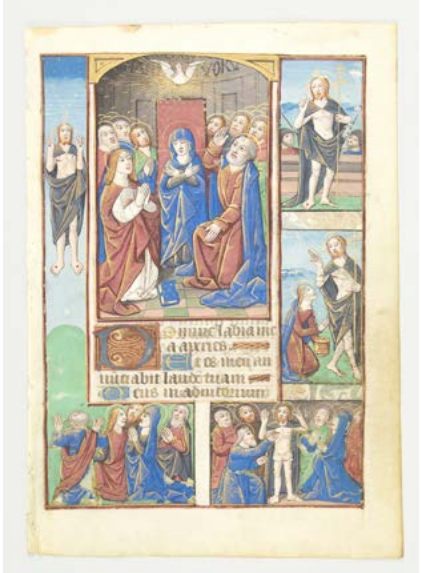 Domine labia me
a aperies.
Et os meu an
nuciabit laude tuam
Deus in adiutorium